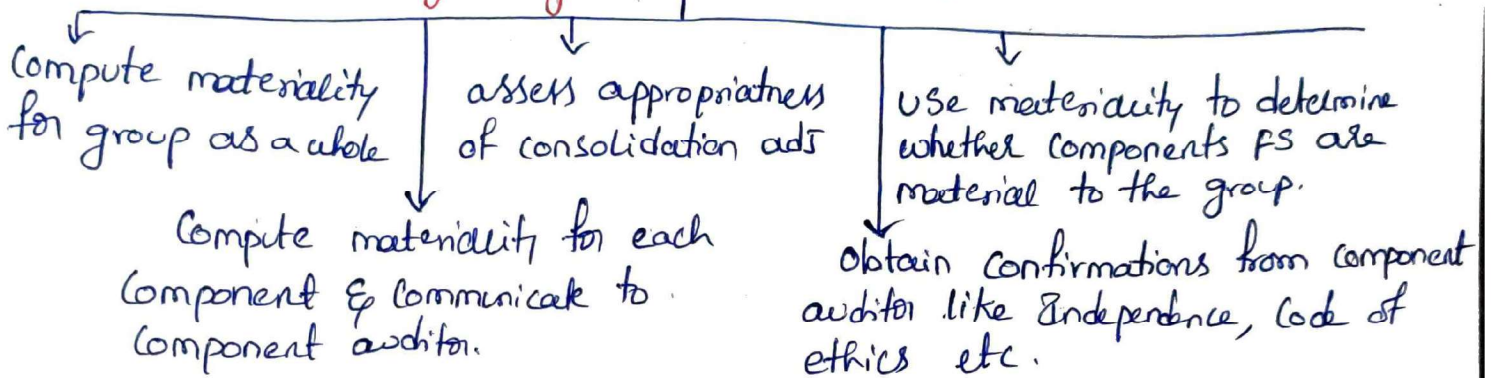 Compute materiality
for group as a whole
assess appropriatness
of consolidation adj
Use materiality to determine
whether components FS are
material to the group.
Compute materiality for each
Component & Communicate to
Component auditor.
Obtain Confirmations from component
auditor like Independence, Code of
ethics etc.